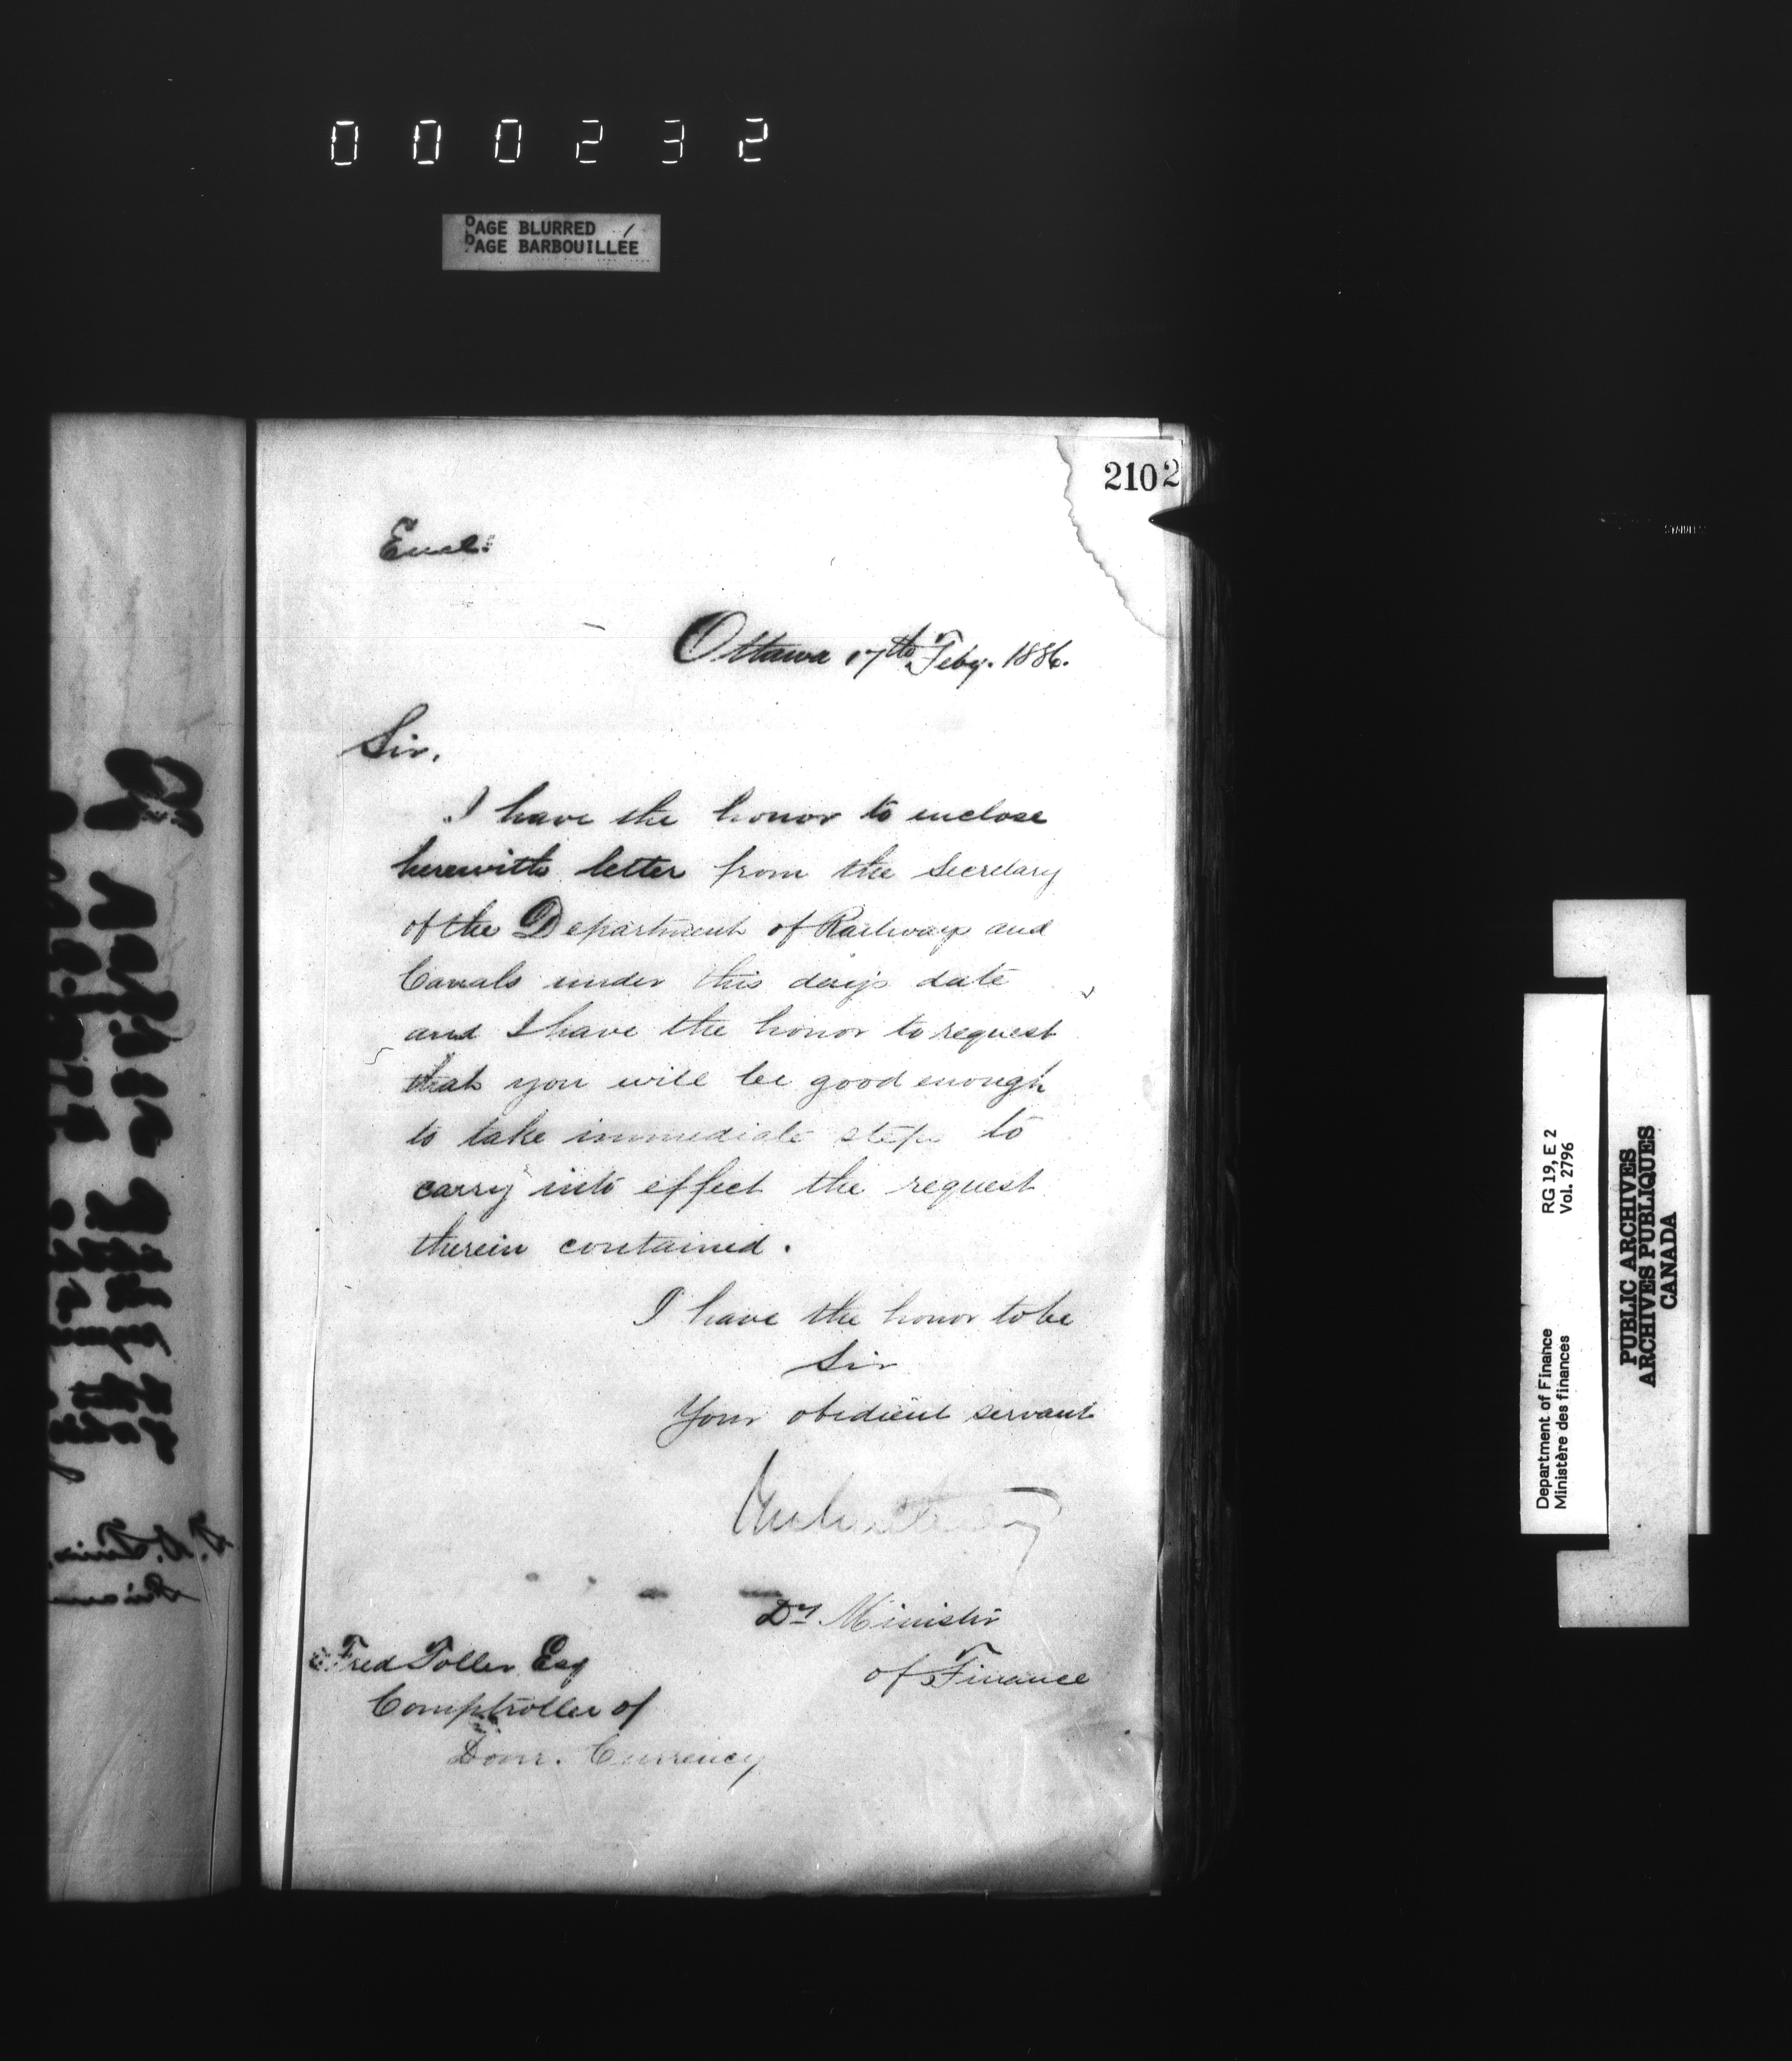 000232
PAGE BLURRED
PAGE BARBOUILLÉE
2102
Encl:
Ottawa 17th Feby. 1886.
Sir,
I have the honor to enclose
herewith letter from the Secretary
of the Department of Railways and
Canals under this day's date
and I have the honor to request
that you will be good enough
to take immediate steps to
carry into effect the request
therein contained.
I have the honor to be
Sir
Your obedient servant
Dy Minister
of Finance
Fred Toller Esq
Comptroller of
Domn. Currency
Department of Finance
Ministère des finances
RG 19, E 2
Vol. 2796
PUBLIC ARCHIVES
ARCHIVES PUBLIQUES
CANADA